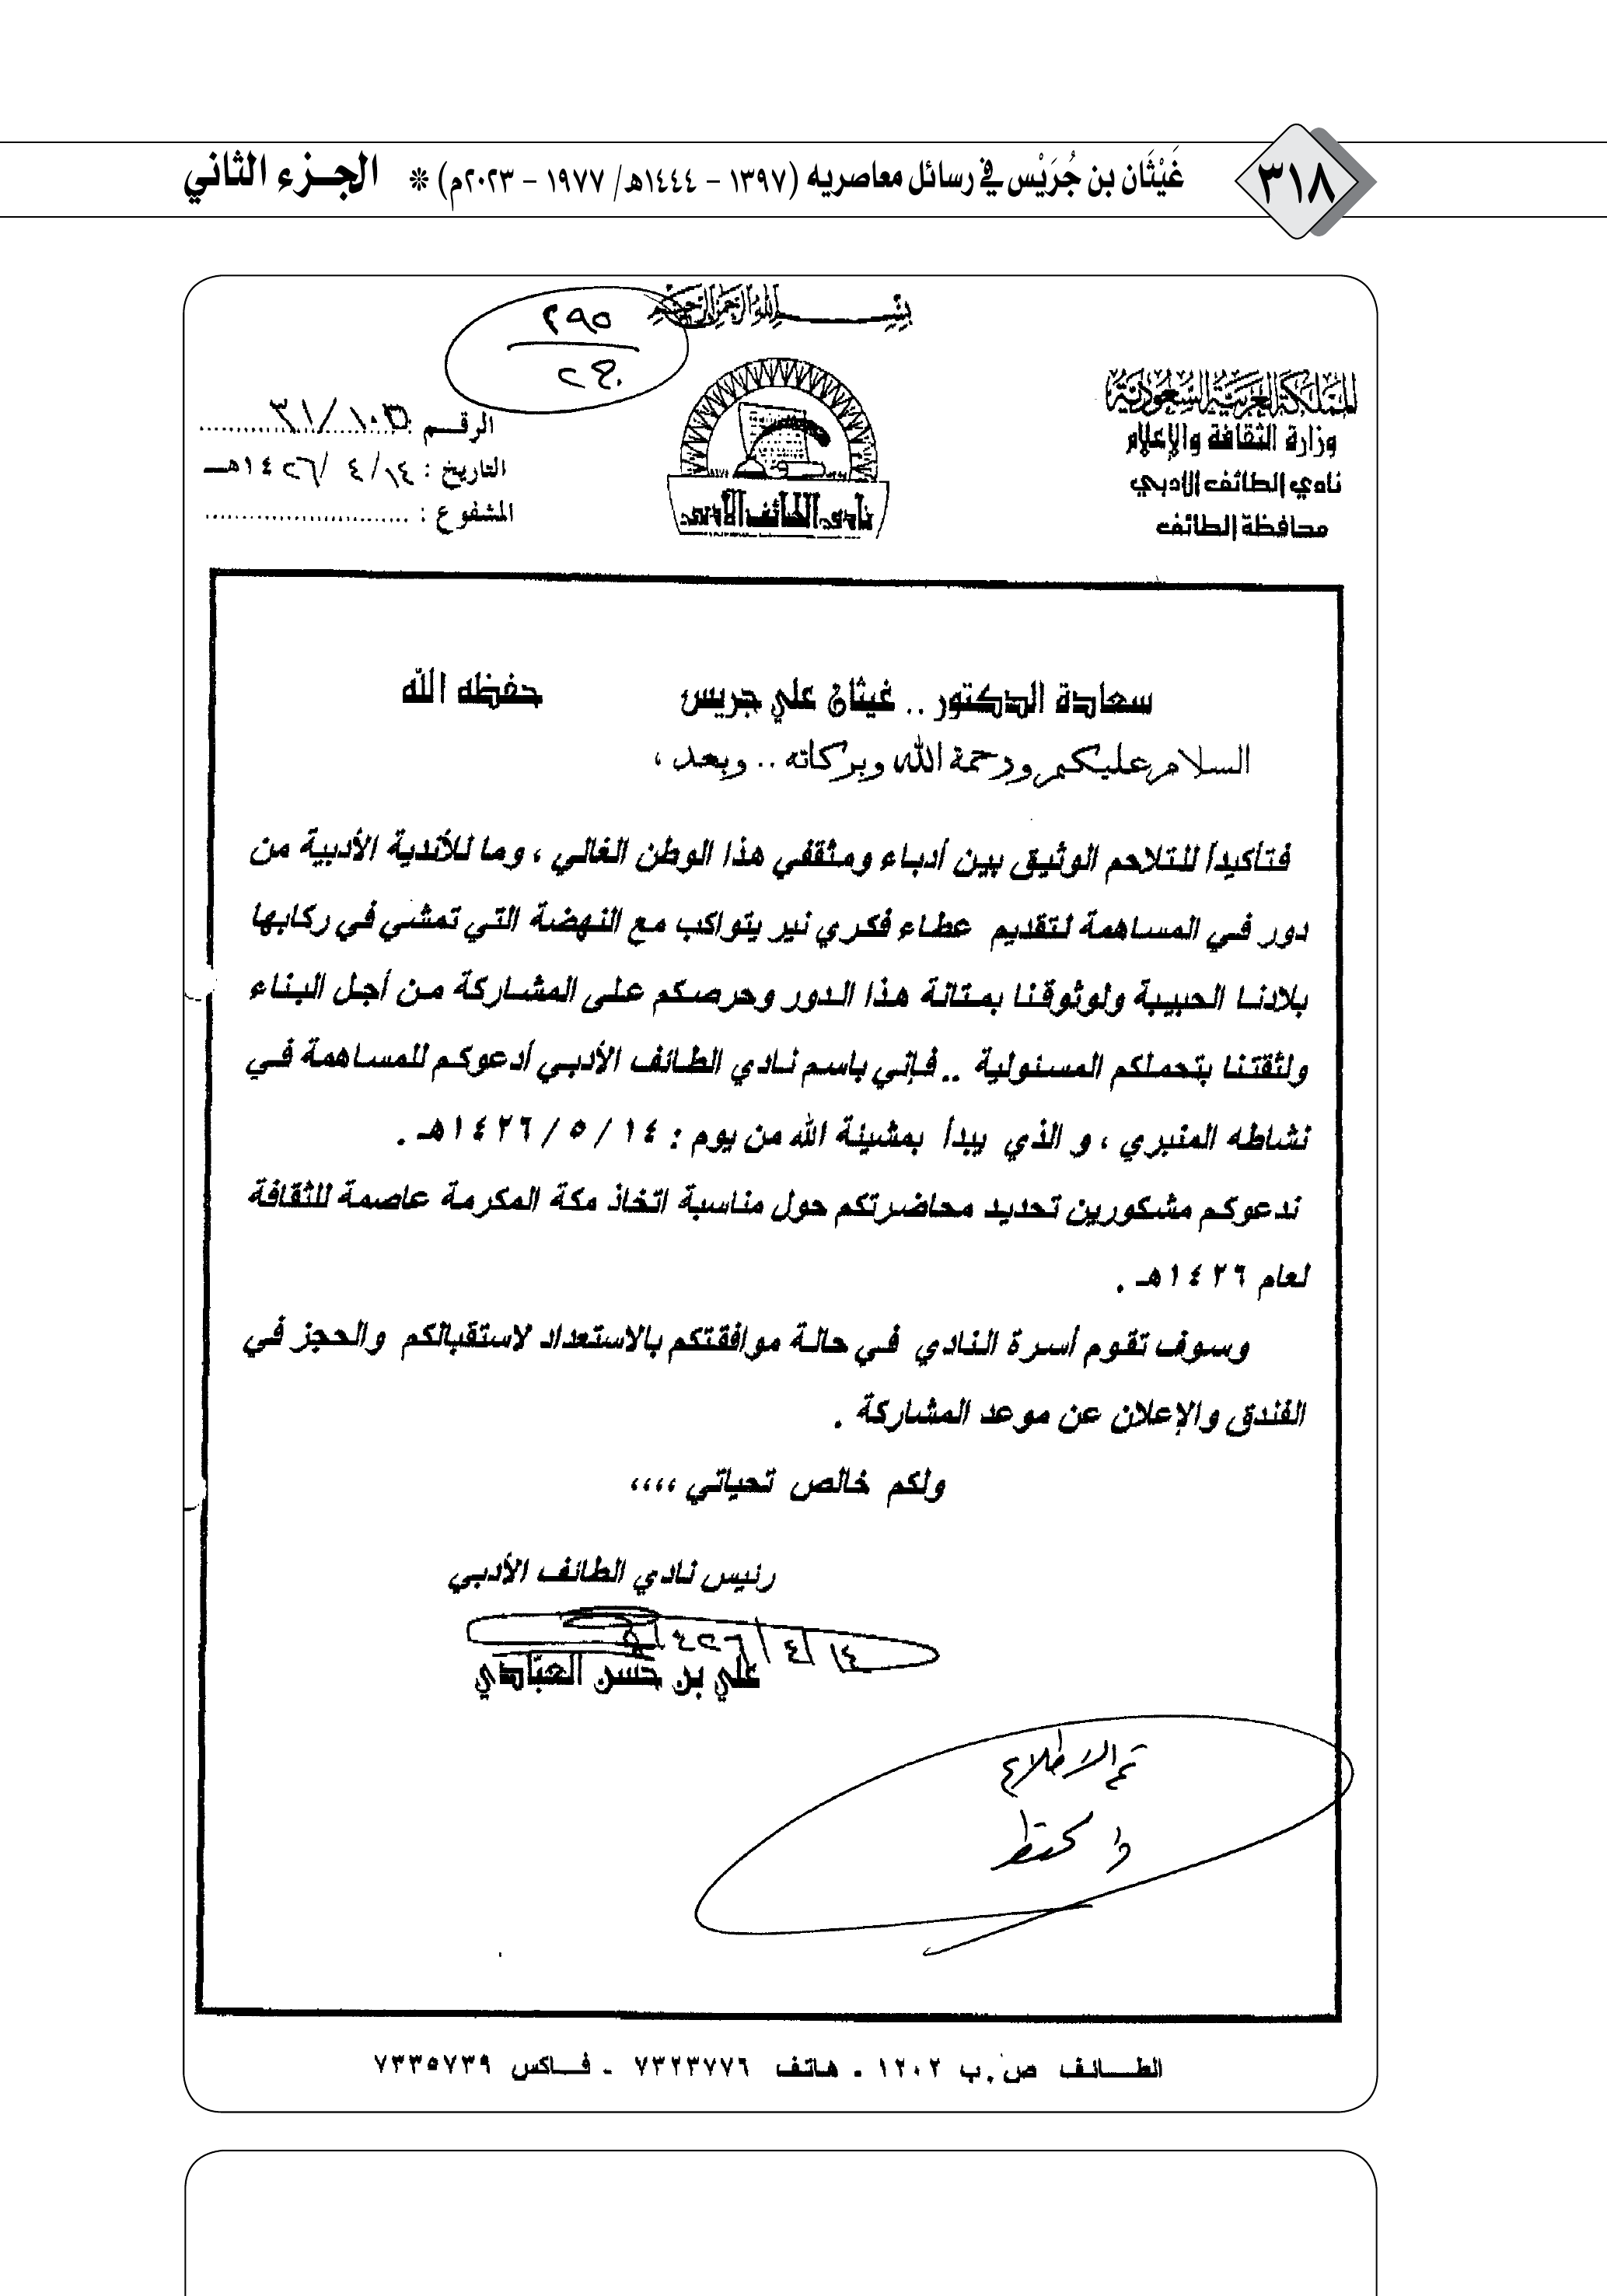 ٣١٨
غَيْثَان بن جُرَيْس في رسائل معاصريه (١٣٩٧ - ١٤٤٤هـ/ ١٩٧٧ - ٢٠٢٣م) * الجزء الثاني
بسم الله الرحمن الرحيم
٢٩٥
المملكة العربية السعودية
وزارة الثقافة والإعلام
نادي الطائف الادبي
محافظة الطائف
نادي الطائف الأدبي
الرقم :
التاريخ : ١٤/ ٤ /١٤٢٦هـ
المشفوع :
سعادة الدكتور .. غيثان علي جريس حفظه الله
السلام عليكم ورحمة الله وبركاته .. وبعد ،
فتأكيدأ للتلاحم الوثيق بين أدباء ومثقفي هذا الوطن الغالي ، وما للأندية الأدبية من
دور في المساهمة لتقديم عطاء فكري نير يتواكب مع النهضة التي تمشي في ركابها
بلادنا الحبيبة ولوثوقنا بمتانة هذا الدور وحرصكم على المشاركة من أجل البناء
ولثقتنا بتحملكم المسئولية .. فإني باسم نادي الطائف الأدبي أدعوكم للمساهمة في
نشاطه المنبري ، و الذي يبدأ بمشيئة الله من يوم : ١٤ / ٥ / ١٤٢٦هـ .
ندعوكم مشكورين تحديد محاضرتكم حول مناسبة اتخاذ مكة المكرمة عاصمة للثقافة
لعام ١٤٢٦هـ .
وسوف تقوم أسرة النادي في حالة موافقتكم بالاستعداد لاستقبالكم والحجز في
الفندق والإعلان عن موعد المشاركة .
ولكم خالص تحياتي ،،،،
رئيس نادي الطائف الأدبي
١٤/ ٤/ ١٤٢٦
علي بن حسن العبّادي
تم الاطلاع
الطائف ص.ب ١٢٠٢ - هاتف ٧٣٢٣٧٧٦ - فاكس ٧٣٣٥٧٣٩